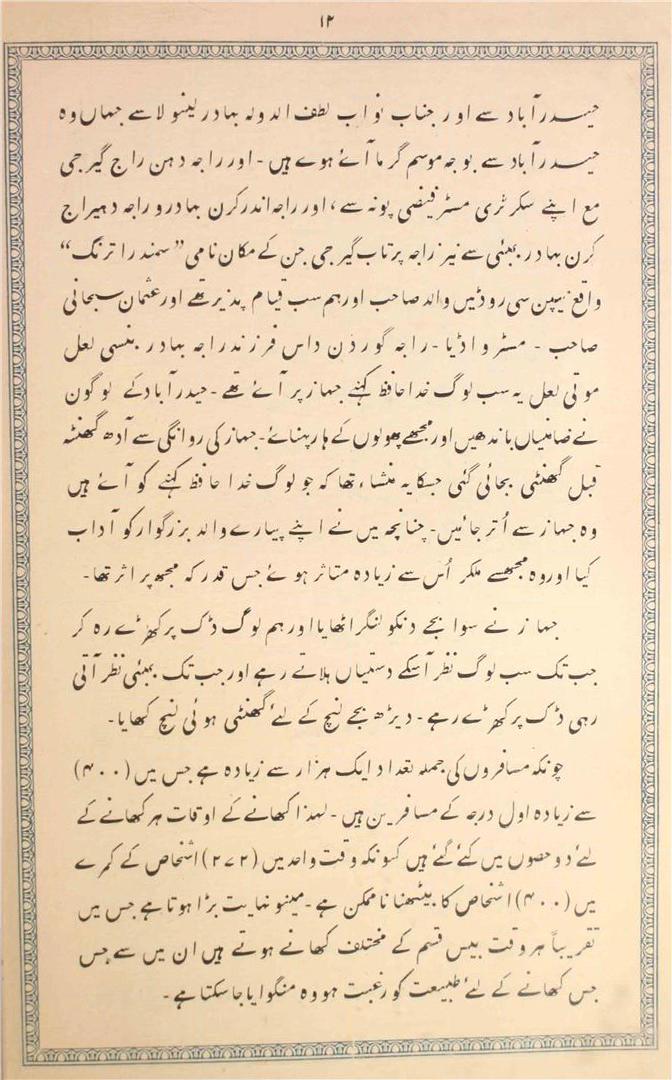 ۱۲
حیدرآباد سے اور جناب نواب لطف الدولہ بہادر لینولا سے جہاں وہ
حیدرآباد سے بوجہ موسم گرما آئے ہوے ہیں - اور راجہ دہن راج گیر جی
مع اپنے سکرٹری مسٹر فیضی پونہ سے، اور راجہ اندر کرن بہادر و راجہ دہیراج
کرن بہادر بمبئی سے نیز راجہ پرتاب گیر جی جن کے مکان نامی ”سمندرا ترنگ“
واقع نیپن سی روڈ میں والد صاحب اور ہم سب قیام پذیر تھے اور عثمان سبحانی
صاحب - مسٹر واڈیا - راجہ گوردن داس فرزند راجہ بہادر بنسی لعل
موتی لعل یہ سب لوگ خدا حافظ کہنے جہاز پر آئے تھے - حیدرآباد کے لوگون
نے ضامنیاں باندھیں اور مجھے پھولوں کے ہار پہنائے - جہاز کی روانگی سے آدھ گھنٹہ
قبل گھنٹی بجائی گئی جسکا یہ منشاء تھا کہ جو لوگ خدا حافظ کہنے کو آئے ہیں
وہ جہاز سے اُتر جائیں - چنانچہ میں نے اپنے پیارے والد بزرگوار کو آداب
کیا اور وہ مجھسے ملکر اُس سے زیادہ متاثر ہوئے جس قدر کہ مجھ پر اثر تھا -
جہاز نے سوا بجے دنکو لنگر اٹھایا اور ہم لوگ ڈک پر کھڑے رہ کر
جب تک سب لوگ نظر آسکے دستیاں ہلاتے رہے اور جب تک بمبئی نظر آتی
رہی ڈک پر کھڑے رہے - دیڑھ بجے لنچ کے لئے گھنٹی ہوئی لنچ کھایا -
چونکہ مسافروں کی جملہ تعداد ایک ہزار سے زیادہ ہے جس میں (۴۰۰)
سے زیادہ اول درجہ کے مسافرین ہیں - لہذا کھانے کے اوقات ہر کھانے کے
لئے دو حصوں میں کئے گئے ہیں کیونکہ وقت واحد میں (۲۷۲) اشخاص کے کمرے
میں (۴۰۰) اشخاص کا بیٹھنا ناممکن ہے - مینو نہایت بڑا ہوتا ہے جس میں
تقریباً ہر وقت بیس قسم کے مختلف کھانے ہوتے ہیں ان میں سے جس
جس کھانے کے لئے طبیعت کو رغبت ہو وہ منگوایا جا سکتا ہے -